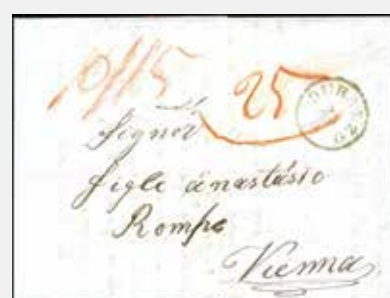 10/15
25
DURAZZO
Signor
Figli Anastasio
Rompa
Vienna